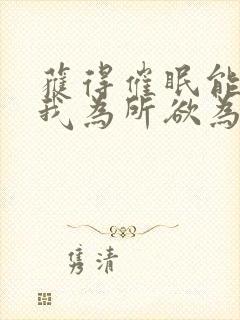 獲得催眠能
我為所欲為
隽清